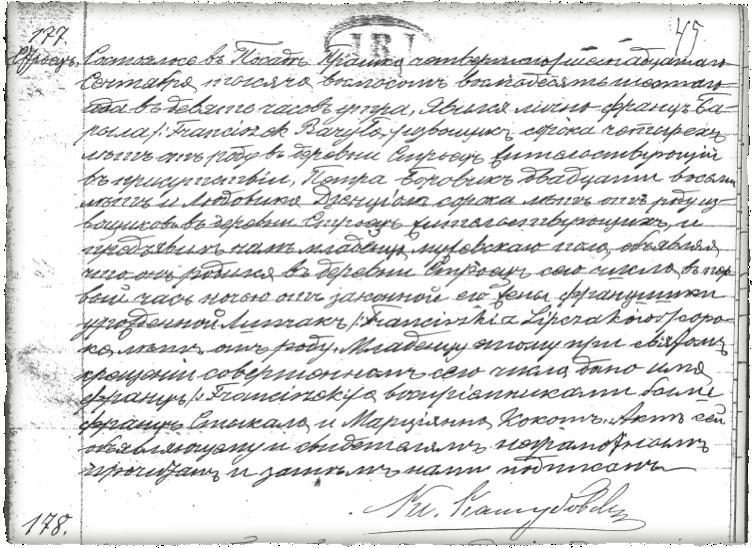 45
177.
Стройцъ. Состоялось въ Посадѣ четвертаго /шестнадцатаго/
Сентября тысяча восьмосотъ восьмдесятъ шестаго
года въ девять часовъ утра, Явился лично Францъ Ба-
рыла /:Francisek Baryła,/ извощикъ сорока четырехъ
лѣтъ отъ роду въ деревни Стройцъ жительствующій
въ присутствіи, Петра Боровикъ двадцати восьми
лѣтъ и Людовика сорока лѣтъ отъ роду из-
вощиковъ въ деревни Стройцъ жительствующихъ, и
предъявилъ намъ младенца мужескаго пола, объявляя
что онъ родился въ деревни Стройцъ сего числа въ пер-
вый часъ ночью отъ законной его жены Францишки
урожденной Липчакъ /:Franciszkia Lipczaków:/ соро-
ка лѣтъ отъ роду. Младенцу этому при святомъ
крещеніи совершенномъ сего числа дано имя
Францъ /: воспріемниками были
Францъ Стыкала и Марціянна Кокотъ. Актъ сей
объявляющему и свидѣтелямъ неграмотнымъ
прочитанъ и затѣмъ нами подписанъ
178.